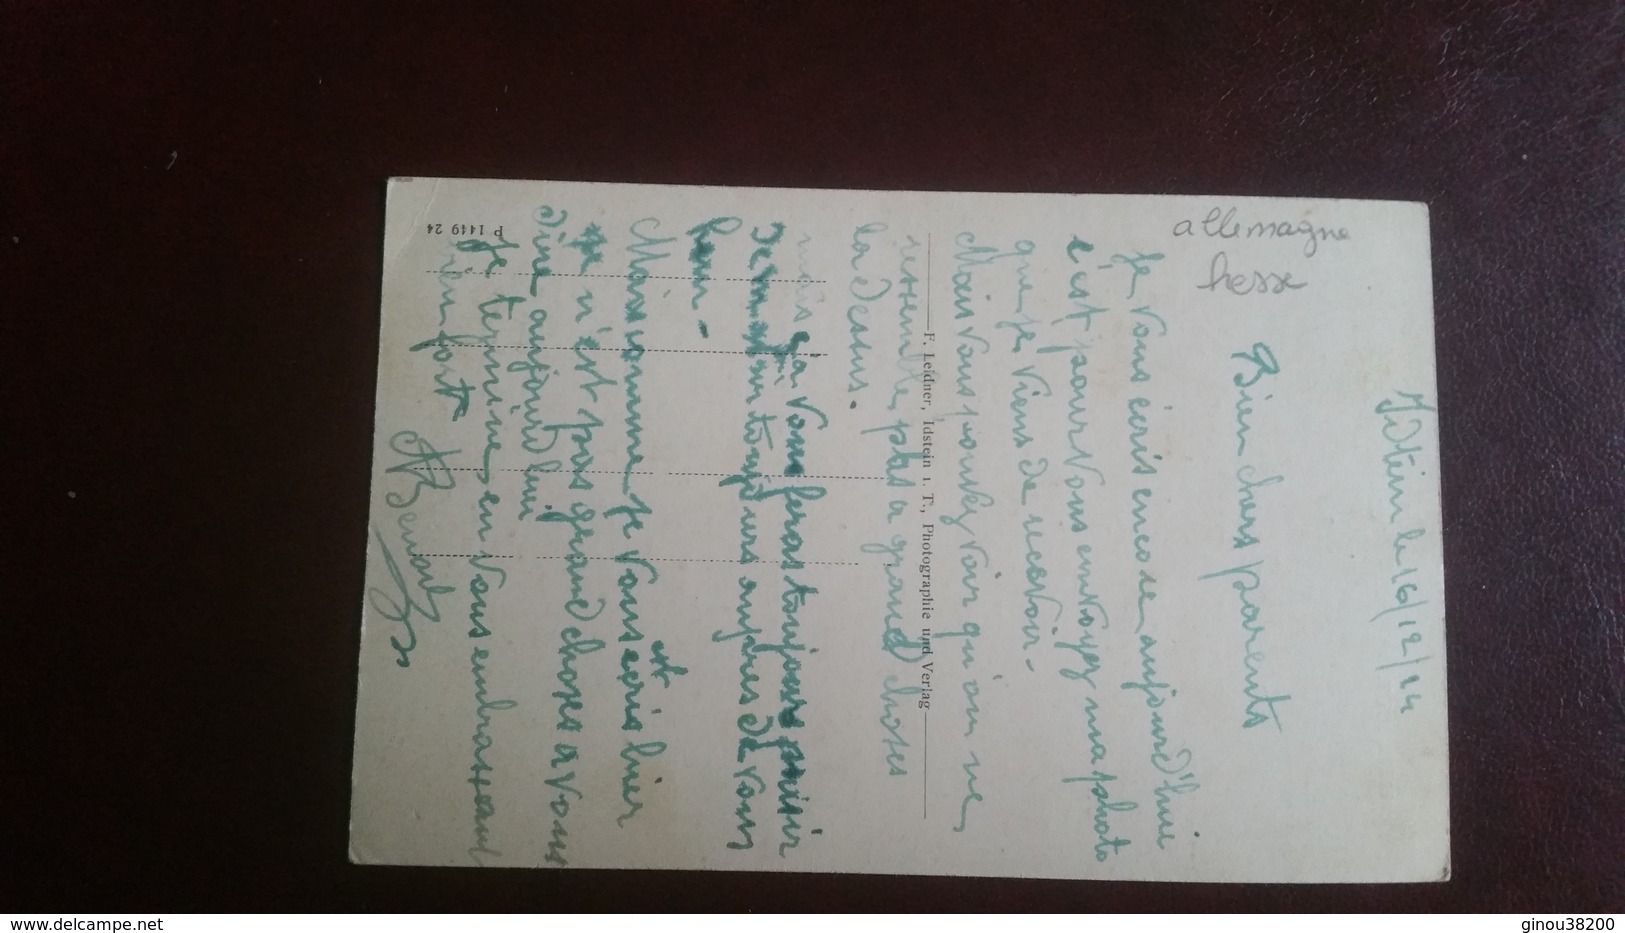 Idstein le 16/12/24
Bien chers parents
Je vous écris encore aujourd'hui
c'est pour vous envoyez ma photo
que je viens de recevoir.
Mais vous pouvez voir qu'on ne
ressemble plus a grand choses
la desus.
mais ça vous feras toujours plaisir
toujours aupres de vous
Mais comme je vous est ecris hier
je n'est pas grand choses a vous
dire aujourd'hui
Je termine en vous embrassant
bien fort
allemagne
hesse
F. Leidner, Idstein i. T., Photographie und Verlag
P 1449 24
delcampe.net
ginou38200